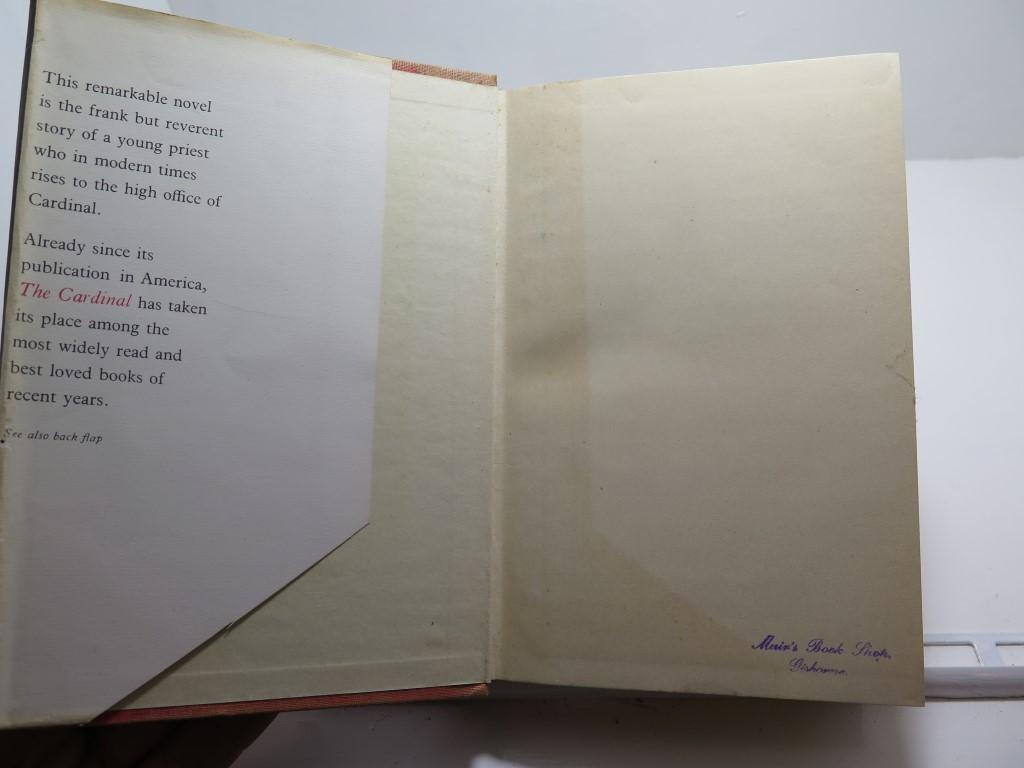 This remarkable novel
is the frank but reverent
story of a young priest
who in modern times
rises to the high office of
Cardinal.
Already since its
publication in America,
The Cardinal has taken
its place among the
most widely read and
best loved books of
recent years.
See also back flap
Muir's Book Shop,
Gisborne.